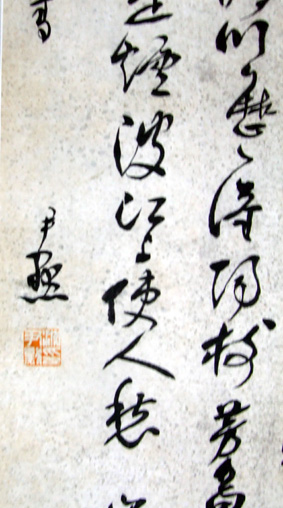 川歷〻漢陽樹芳
是煙波江上使人愁
書
尹默